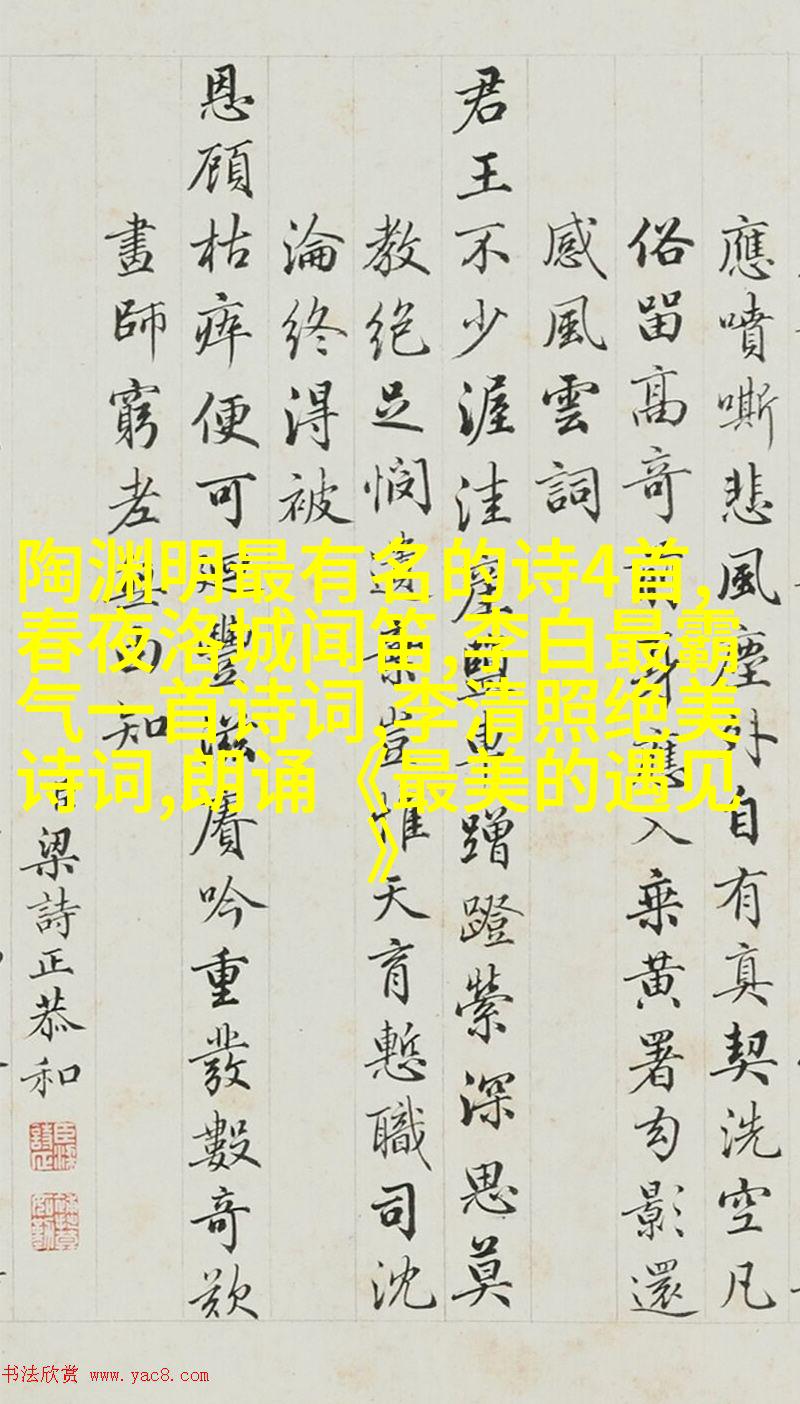 應噴嘶悲風塵外自有真契洗空凡
俗留高奇前身應入乘黄署勾影還
感風雲詞
君王不少渥洼蹭蹬縈深思莫
教絶足憫遺棄豈惟天育慙職司沈
淪終得被
恩顧枯瘁便可豐滋賡吟重發數奇歎
畫師窮老知
臣梁詩正恭和
陶渊明最有名的诗4首,
春夜洛城闻笛,李白最霸
气一首诗词,李清照绝美
诗词,朗诵《最美的遇见
》
书法欣赏 www.yac8.com